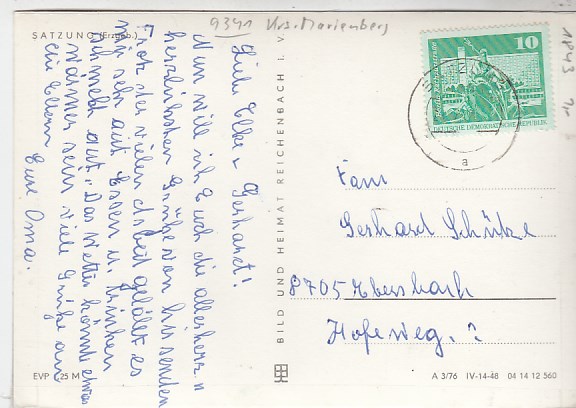 9341 Krs. Marienberg
SATZUNG (Erzgeb.)
Liebe Elke u Gerhardt!
Nun will ich Euch die allerherz n
herzlichsten Grüße von hir senden
Trotz der vielen Arbeit gefällt es
mir sehr gut Essen u. Trinken
schmekt gut. Das Wetter könnte etwas
wärmer sein viele Grüße an
die Eltern
Eure Oma.
BILD UND HEIMAT REICHENBACH I. V.
10
DEUTSCHE DEMOKRATISCHE REPUBLIK
a
1843
Fam
Gerhard Schütze
8705 Ebersbach
Hofeweg. ?
EVP -,25 M
A 3/76 IV-14-48 04 14 12 560